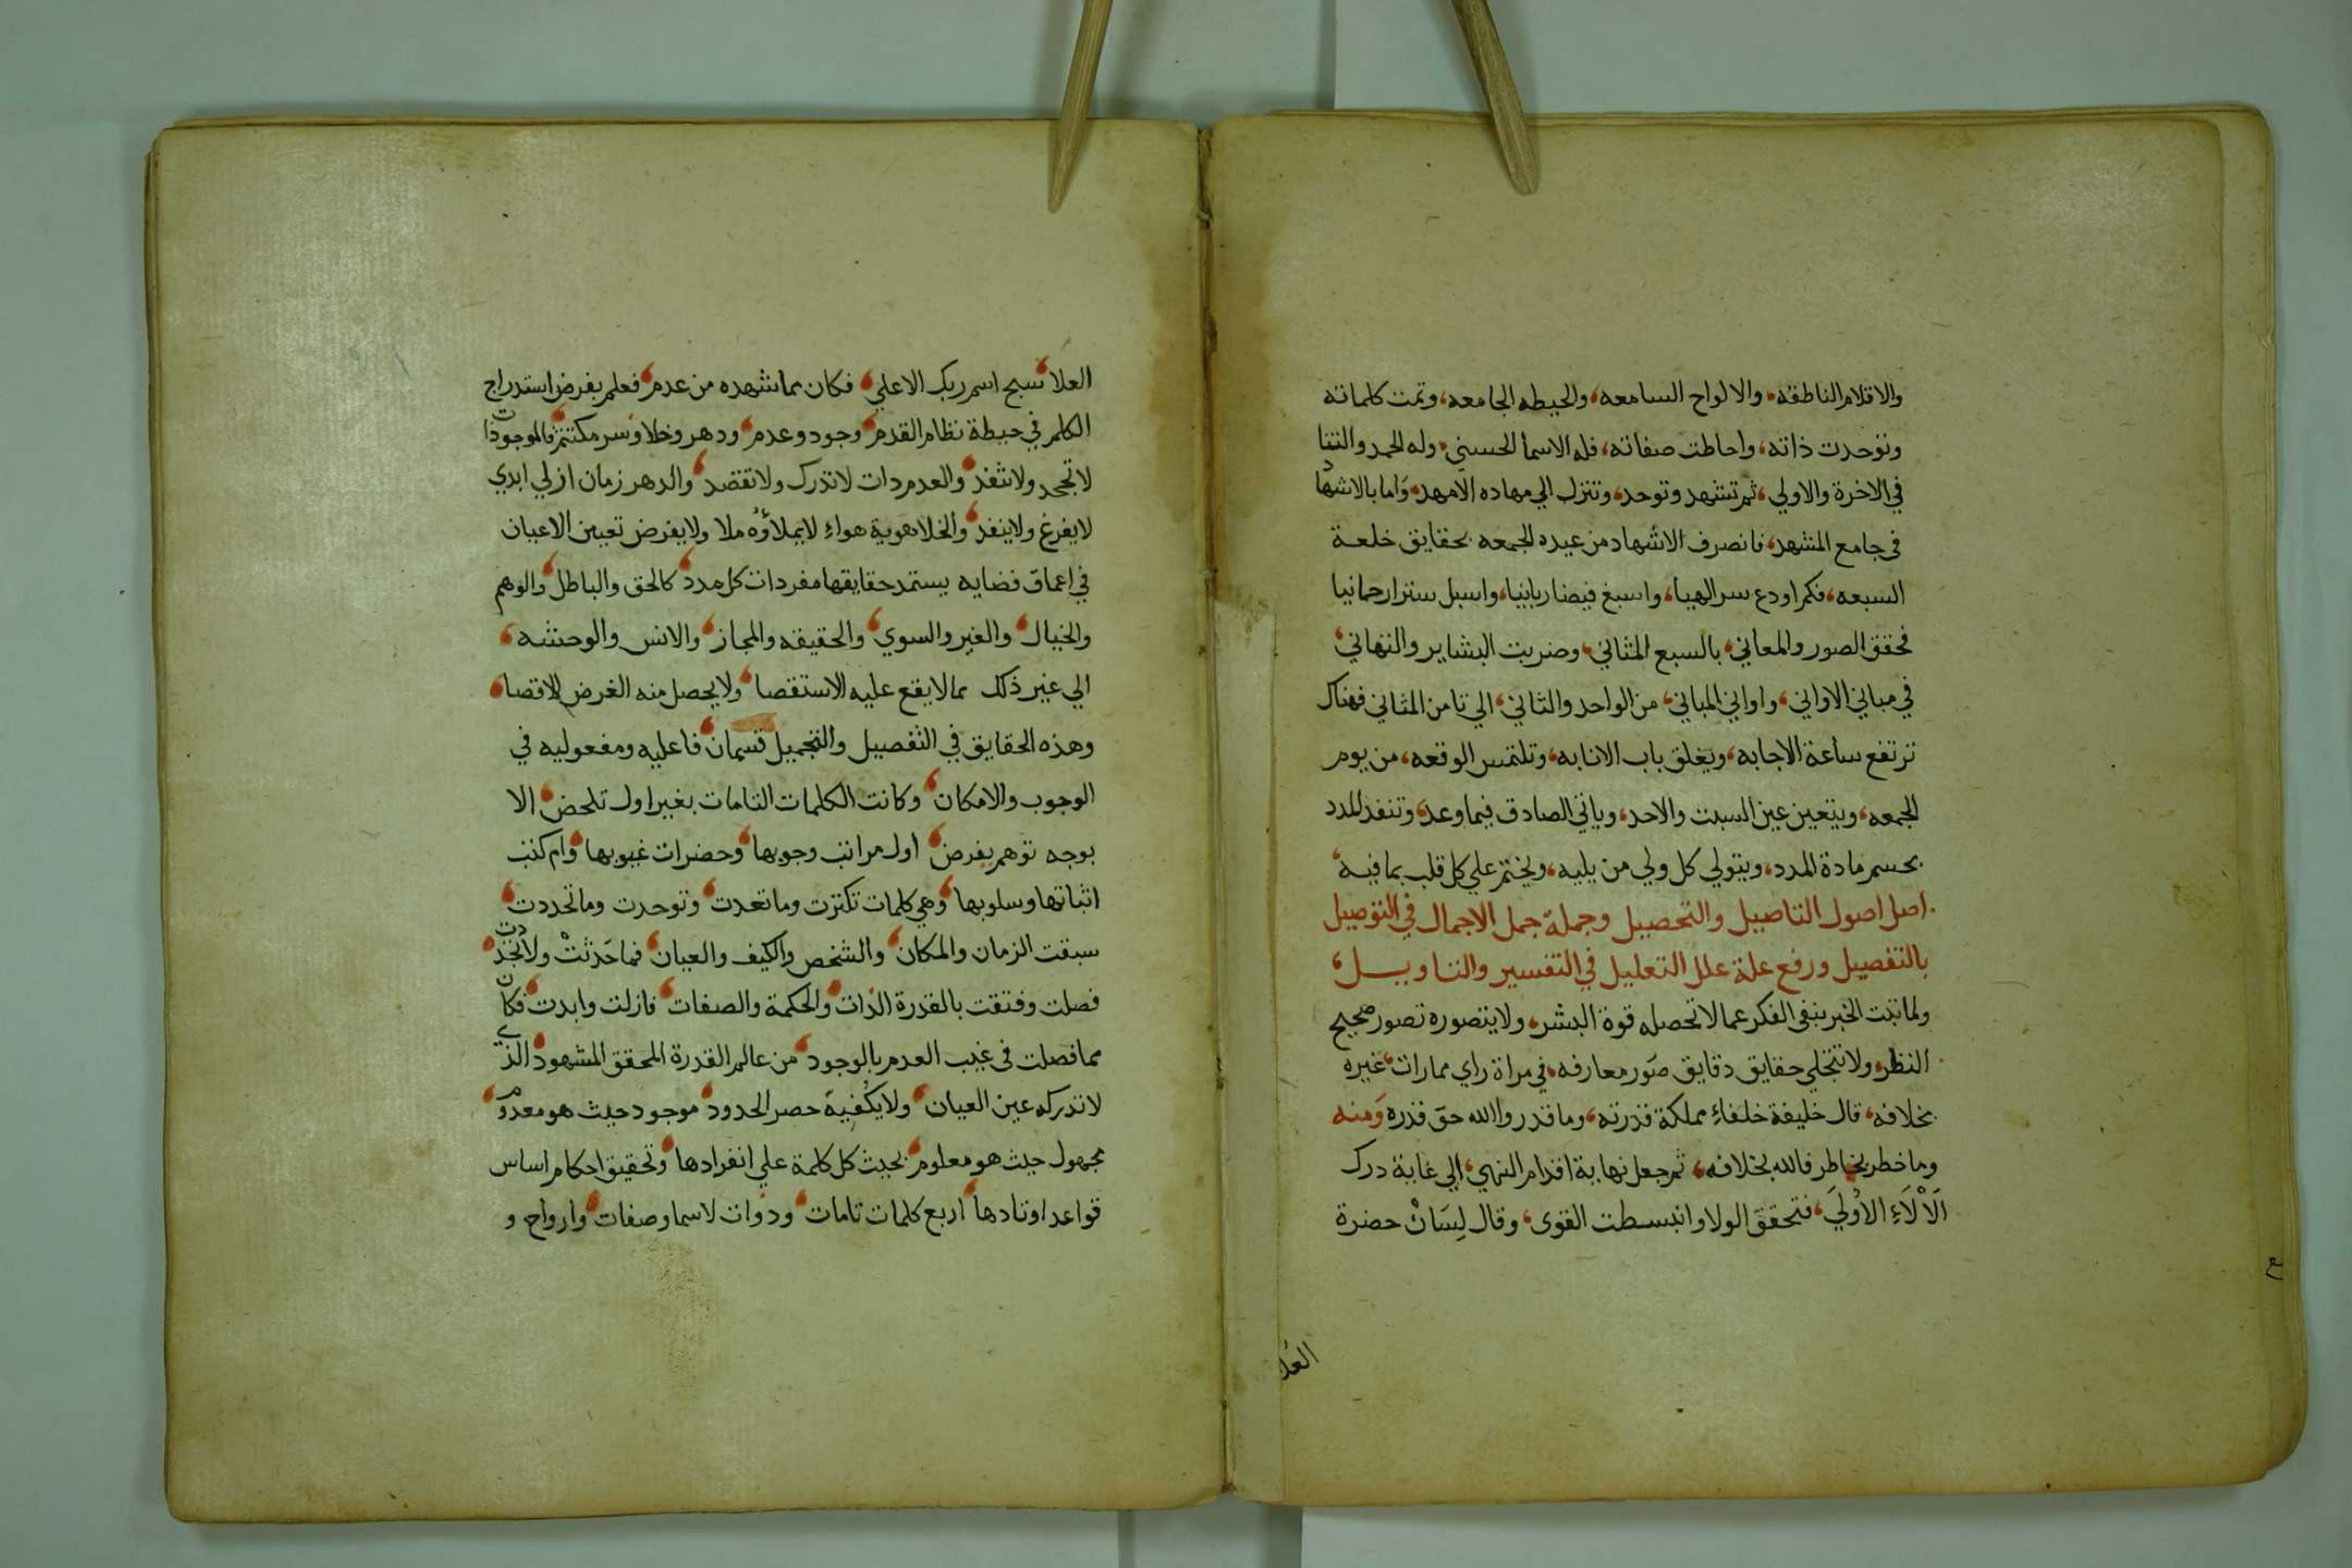 والاقلام الناطقه، والالواح السامعه، والحيطه الجامعه، وتمت كلماته
وتوحدت ذاته، واحاطت صفاته، فله الاسما الحسني، وله الحمد والثنا
في الاخرة والاولي، ثم تشهد وتوحد، وتنزل الي مهاده الامهد، واما بالاشهاد
في جامع المشهد، فانصرف الاشهاد من عيده الجمعه بحقايق خلعة
السبعه، فكم اودع سر الهيا، واسبغ فيضا ربانيا، واسبل ستر ارحمانيا
فحقق الصور والمعاني، بالسبع المثاني، وضربت البشاير والتهاني،
في مباني الاواني، واواني المباني، من الواحد والثاني، الي ثامن المثاني فهناك
ترتفع ساعة الاجابه، ويغلق باب الانابه، وتلتمس الوقعه، من يوم
الجمعه، ويتعين عين السبت والاحد، وياتي الصادق فيما وعد، وتنفذ المدد
بحسم مادة المدد، ويتولي كل ولي من يليه، ويختم علي كل قلب بما فيه،
اصل اصول التاصيل والتحصيل وجملة جمل الاجمال في التوصيل
بالتفصيل ورفع علة علل التعليل في التفسير والتاويل،
ولما ثبت الخبر بنفي الفكر عما لا تحصله قوة البشر، ولا يتصوره تصور صحيح
النظر، ولا تتجلي حقايق دقايق صور معارفه، في مراة راي ممارات، غيره
بخلافه، قال خليفة خلفاء مملكة قدرته، وما قدروا الله حق قدره ومنه
وما خطر بخاطر فالله بخلافه، ثم جعل نهاية اقدام النهي، الي غاية درك
الالاء الاولي، فتحقق الولا وانبسطت القوي، وقال لسان حضرة
العلا
العلا، سبح اسم ربك الاعلي، فكان مما شهده من عدم، فعلم بفرض استدراج
الكلم في حيطة نظام القدم، وجود وعدم، ودهر وخلا وسر مكتتم، فالموجودات
لا تجحد ولا تنفد، والعدم ذات لا تدرك ولا تقصد، والدهر زمان ازلي ابدي
لا يفرغ ولا ينفد، والخلا هوية هواء لا يملاؤه ملا ولا يفرض تعيين الاعيان
في اعماق فضايه يستمد حقايقها مفردات كل مدد، كالحق والباطل، والوهم
والخيال، والغير والسوي، والحقيقه والمجاز، والانس والوحشه،
الي غير ذلك مما لا يقع عليه الاستقصا، ولا يحصل منه الغرض الاقصا،
وهذه الحقايق في التفصيل والتجميل قسمان، فاعليه ومفعوليه في
الوجوب والامكان، وكانت الكلمات التامات بغير اول تلحض، الا
بوجه توهم يفرض، اول مراتب وجوبها، وحضرات غيوبها، وام كتب
اثباتها وسلوبها، وهي كلمات تكثرت وما تعدت، وتوحدت وما تحددت،
سبقت الزمان والمكان، والشخص والكيف والعيان، فما حدثت ولا تجددت،
فصلت وفتقت بالقدرة الذات، والحكمة والصفات، فازلت وابدت، فكان
مما فصلت في غيب العدم بالوجود، من عالم القدرة المحقق المشهود، الذي
لا تدركه عين العيان، ولا يكفيه حصر الحدود، موجود حيث هو معدوم،
مجهول حيث هو معلوم، بحيث كل كلمة علي انفرادها، وتحقيق احكام اساس
قواعد اوتادها، اربع كلمات تامات، وذوات لاسما وصفات، وارواح و